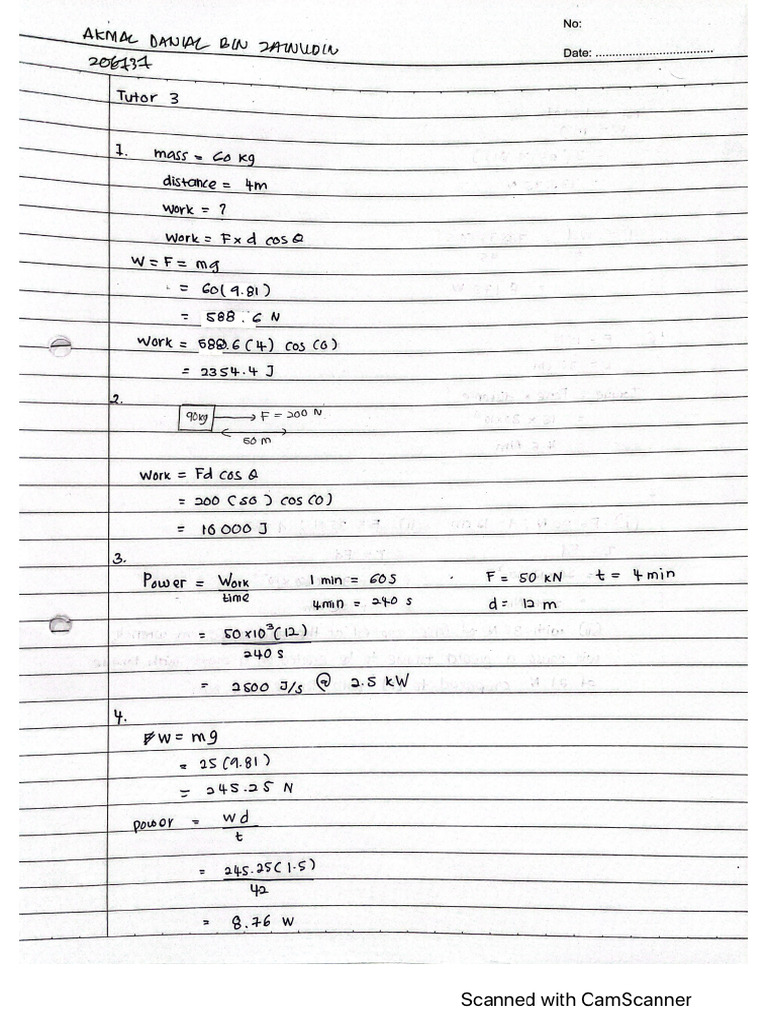 AKMAL DANIAL BIN ZAINUDIN
No:
Date: ....................................
206737
Tutor 3
1. mass = 60 kg
distance = 4m
work = ?
work = F x d cos θ
W = F = mg
= 60(9.81)
= 588.6 N
Work = 588.6 (4) cos (0)
= 2354.4 J
2.
90kg → F = 200 N
50 m
Work = Fd cos θ
= 200 (50) cos (0)
= 10 000 J
3.
Power = Work / time 1 min = 60s F = 50 kN t = 4 min
4min = 240 s d = 12 m
= 50x10³(12) / 240 s
= 2500 J/s @ 2.5 kW
4.
W = mg
= 25 (9.81)
= 245.25 N
power = Wd / t
= 245.25 (1.5) / 42
= 8.76 W
Scanned with CamScanner